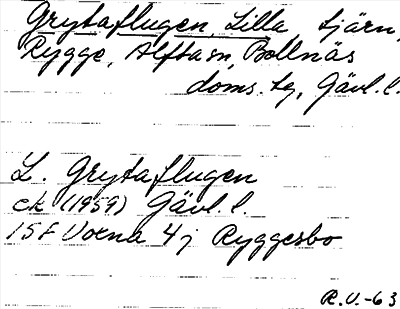 Grytaflugen, Lilla tjärn,
Rygge, Alfta sn, Bollnäs
doms. tg, Gävl. l.
L. Grytaflugen
ek (1959) Gävl. l.
15F Voxna 4j Ryggesbo
R.U.-63